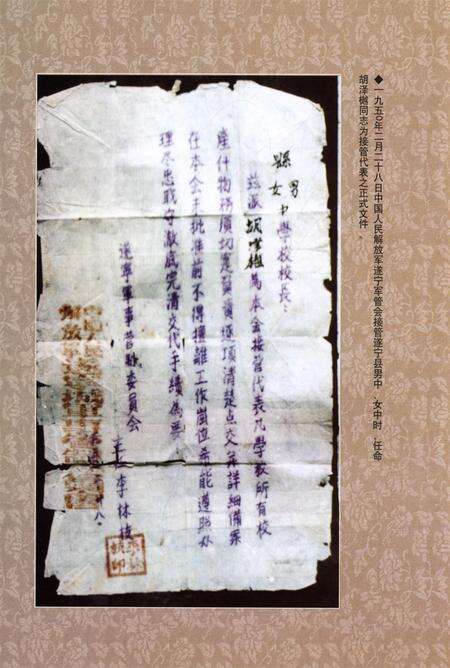 ◆一九五〇年二月二十八日中国人民解放军遂宁军管会接管遂宁县男中、女中时，任命
胡泽樾同志为接管代表之正式文件
縣男
女中學校校長：
茲派胡澤樾為本会接管代表凡學校所有校
產什物務須切實負責逐項清楚点交並詳細備案
在本会未批准前不得擅離工作崗位希能遵照办
理尽忠職守澈底完清交代手續為要
遂寧軍事管制委員会
主任李林枝